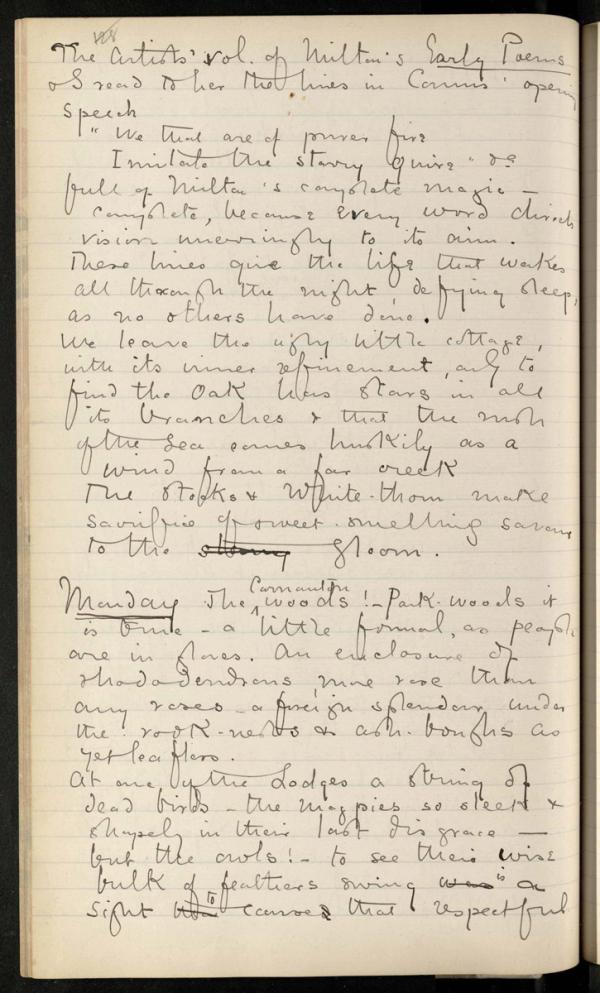 The Artists' vol. of Milton's Early Poems
& I read to her the lines in Comus' opening
speech
"We that are of purer fire
Imitate the starry quire" &c
full of Milton's complete magic —
complete, because every word directs
vision unerringly to its aim.
These lines give the life that wakes
all through the night, defying sleep,
as no others have done.
We leave the ugly little cottage,
with its inner refinement, only to
find the Oak has stars in all
its branches & that the
of the Sea comes huskily as a
wind from a far creek
The Stocks & White-thorn make
sacrifice of sweet-smelling savour
to the strong gloom.
Monday The Carnanton woods! – Park-woods it
is true – a little formal, as people
are in gloves. An enclosure of
rhododendrons, more rose than
any roses – a foreign splendour under
the rook-nests & ash-boughs as
yet leafless.
At one of the Lodges a string of
dead birds – the magpies so sleek &
shapely in their last disgrace —
but the owls! – to see their wise
bulk of feathers swing was is a
sight to cause that respectful